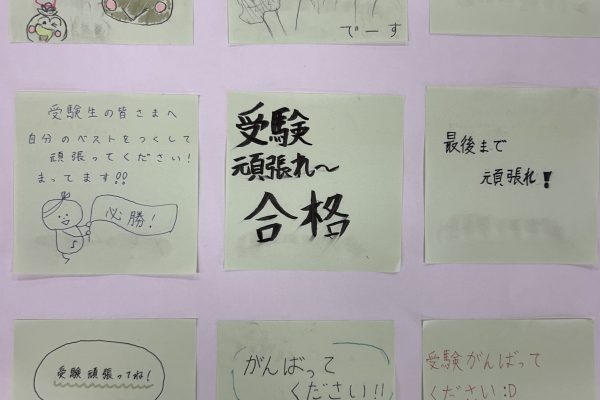 でーす
受験生の皆さまへ
自分のベストをつくして
頑張ってください!
まってます!!
必勝!
受験
頑張れ〜
合格
最後まで
頑張れ!
受験頑張ってね!
がんばって
ください!!
受験がんばって
ください:D